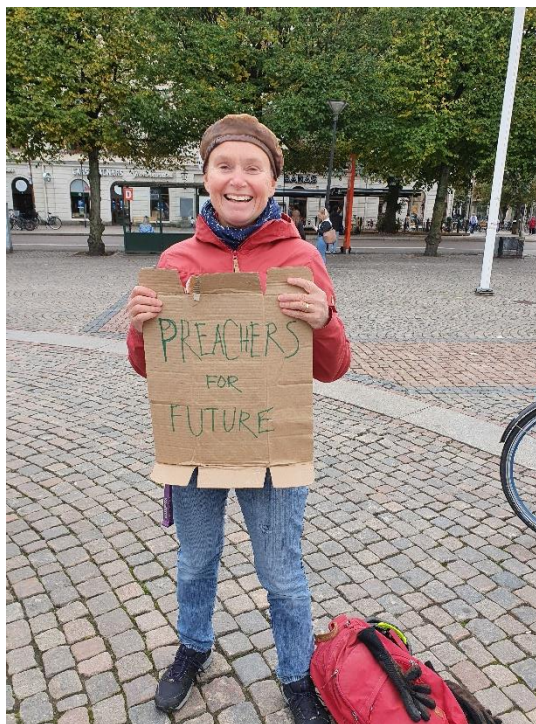 PREACHERS
FOR
FUTURE
D